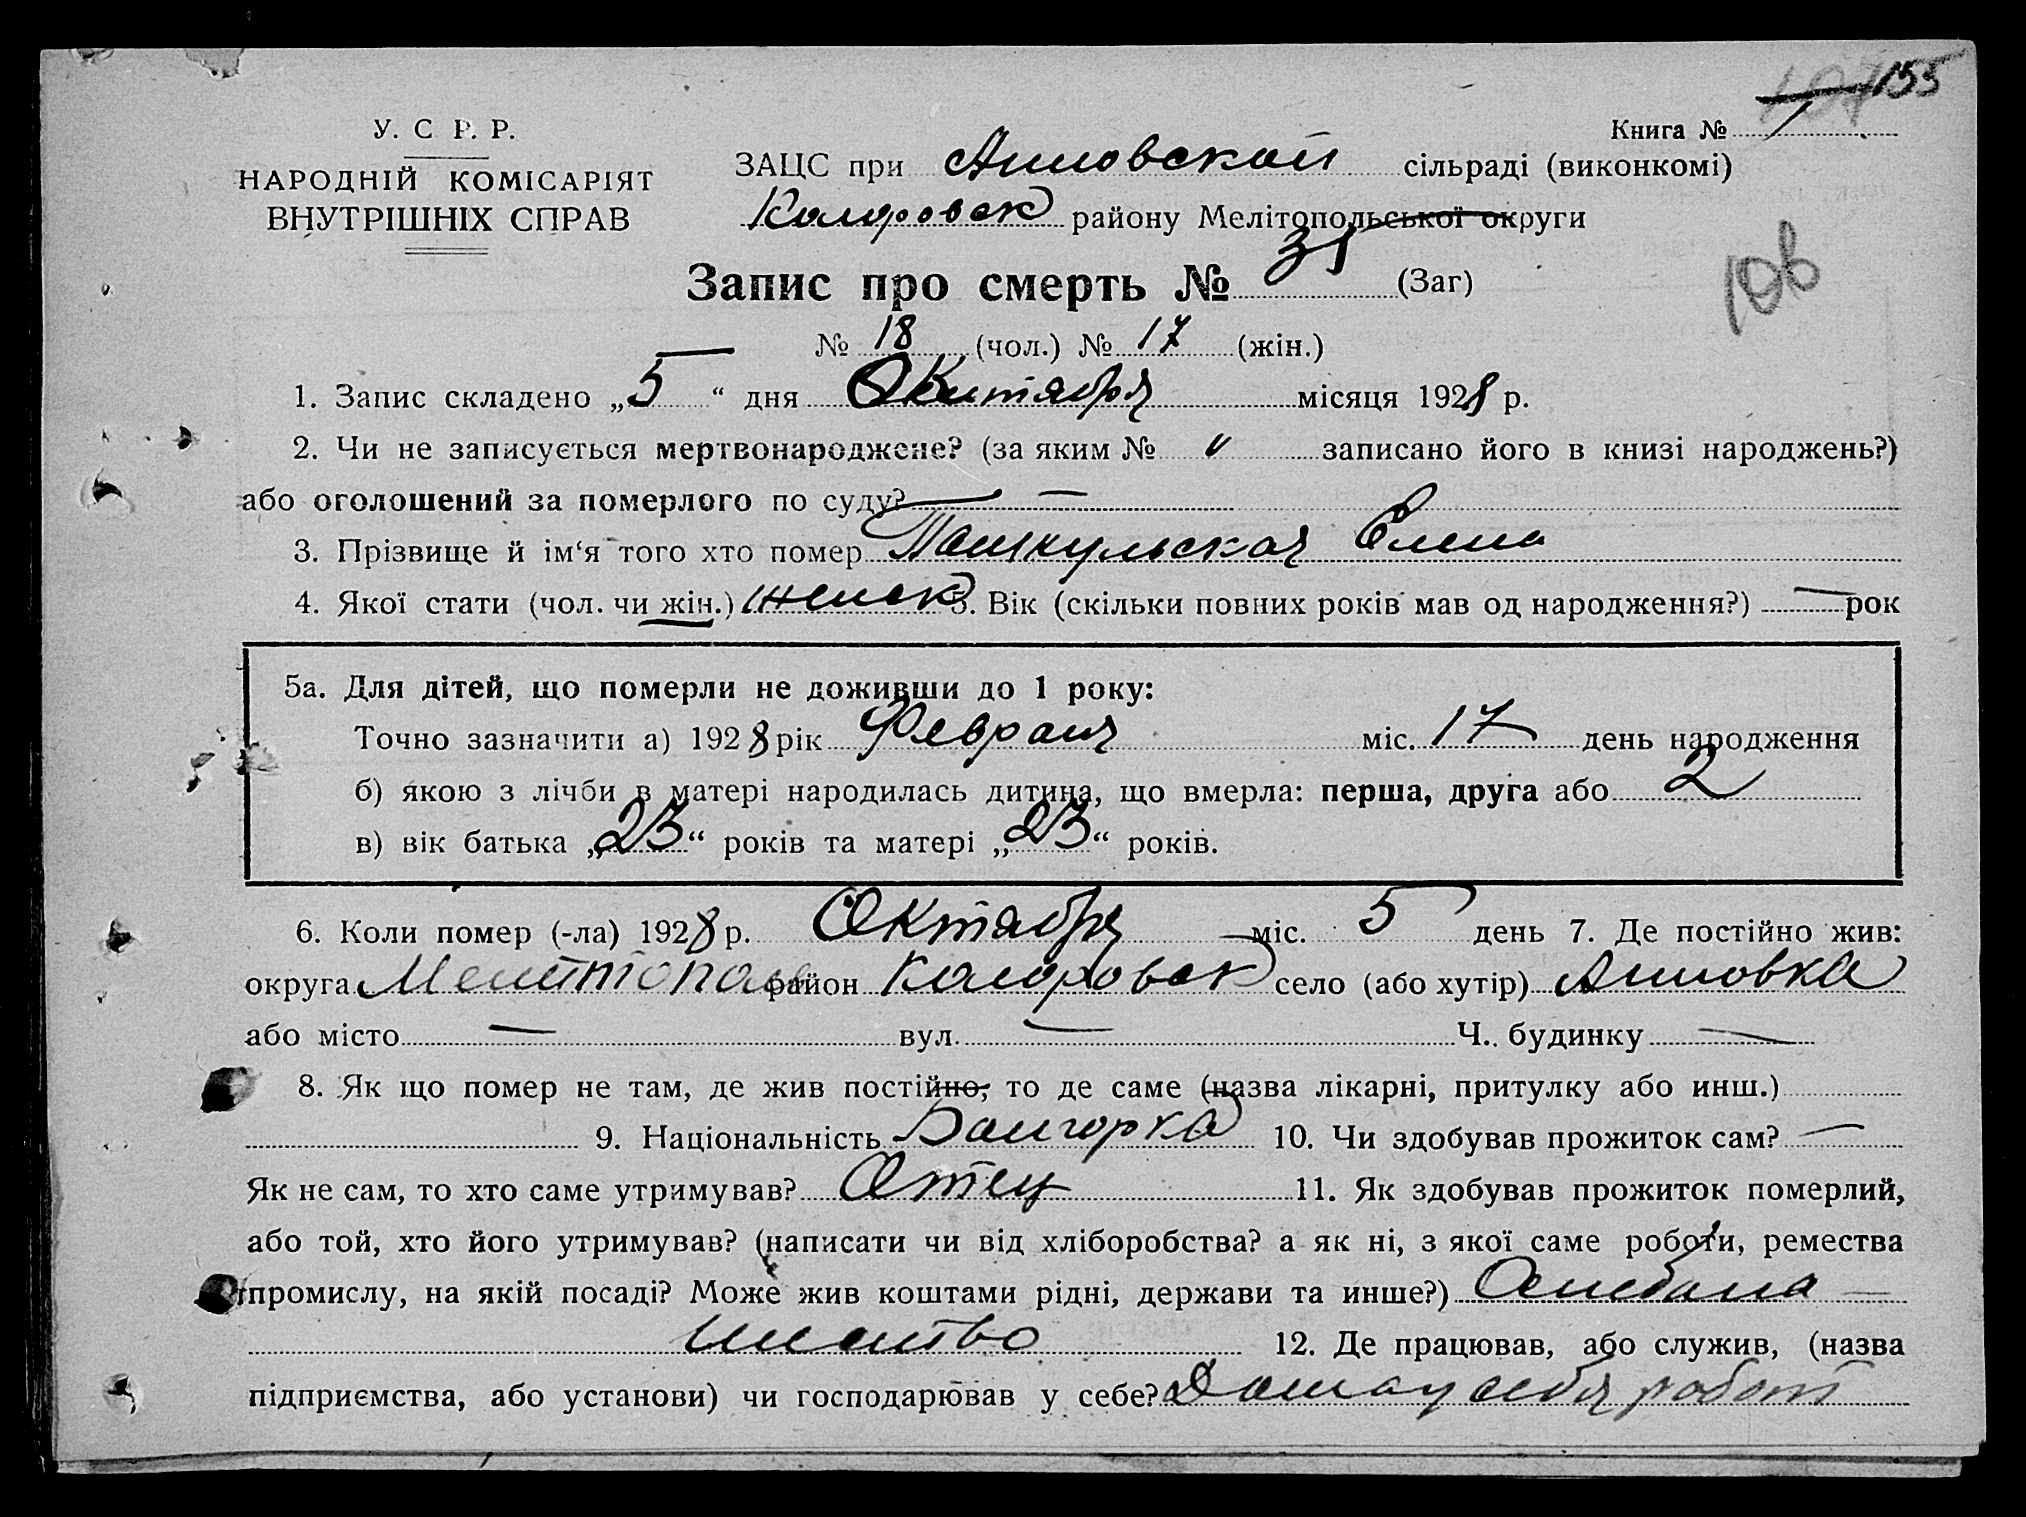 155
У. С. Р. Р.
НАРОДНІЙ КОМІСАРІЯТ
ВНУТРІШНІХ СПРАВ
Книга № 1
ЗАЦС при Анновской сільраді (виконкомі)
Коларовск району Мелітопольської округи
Запис про смерть № 35 (Заг)
№ 18 (чол.) № 17 (жін.)
1. Запис складено „5“ дня Октября місяця 1928 р.
2. Чи не записується мертвонароджене? (за яким № записано його в книзі народжень?)
або оголошений за померлого по суду? —
3. Прізвище й ім‘я того хто помер Ташкульская Елена
4. Якої стати (чол. чи жін.) женск 5. Вік (скільки повних років мав од народження?) — рок
5а. Для дітей, що померли не доживши до 1 року:
Точно зазначити а) 1928 рік Февраля міс. 17 день народження
б) якою з лічби в матері народилась дитина, що вмерла: перша, друга або 2
в) вік батька „23“ років та матері „23“ років.
6. Коли помер (-ла) 1928 р. Октября міс. 5 день 7. Де постійно жив:
округа Мелитополь район Коларовск село (або хутір) Анновка
або місто — вул. — Ч. будинку —
8. Як що помер не там, де жив постійно, то де саме (назва лікарні, притулку або инш.)
9. Національність Болгорка 10. Чи здобував прожиток сам? —
Як не сам, то хто саме утримував? Отец 11. Як здобував прожиток померлий,
або той, хто його утримував? (написати чи від хліборобства? а як ні, з якої саме роботи, ремества
промислу, на якій посаді? Може жив коштами рідні, держави та инше?)
12. Де працював, або служив, (назва
підприємства, або установи) чи господарював у себе? Дома у себя работ